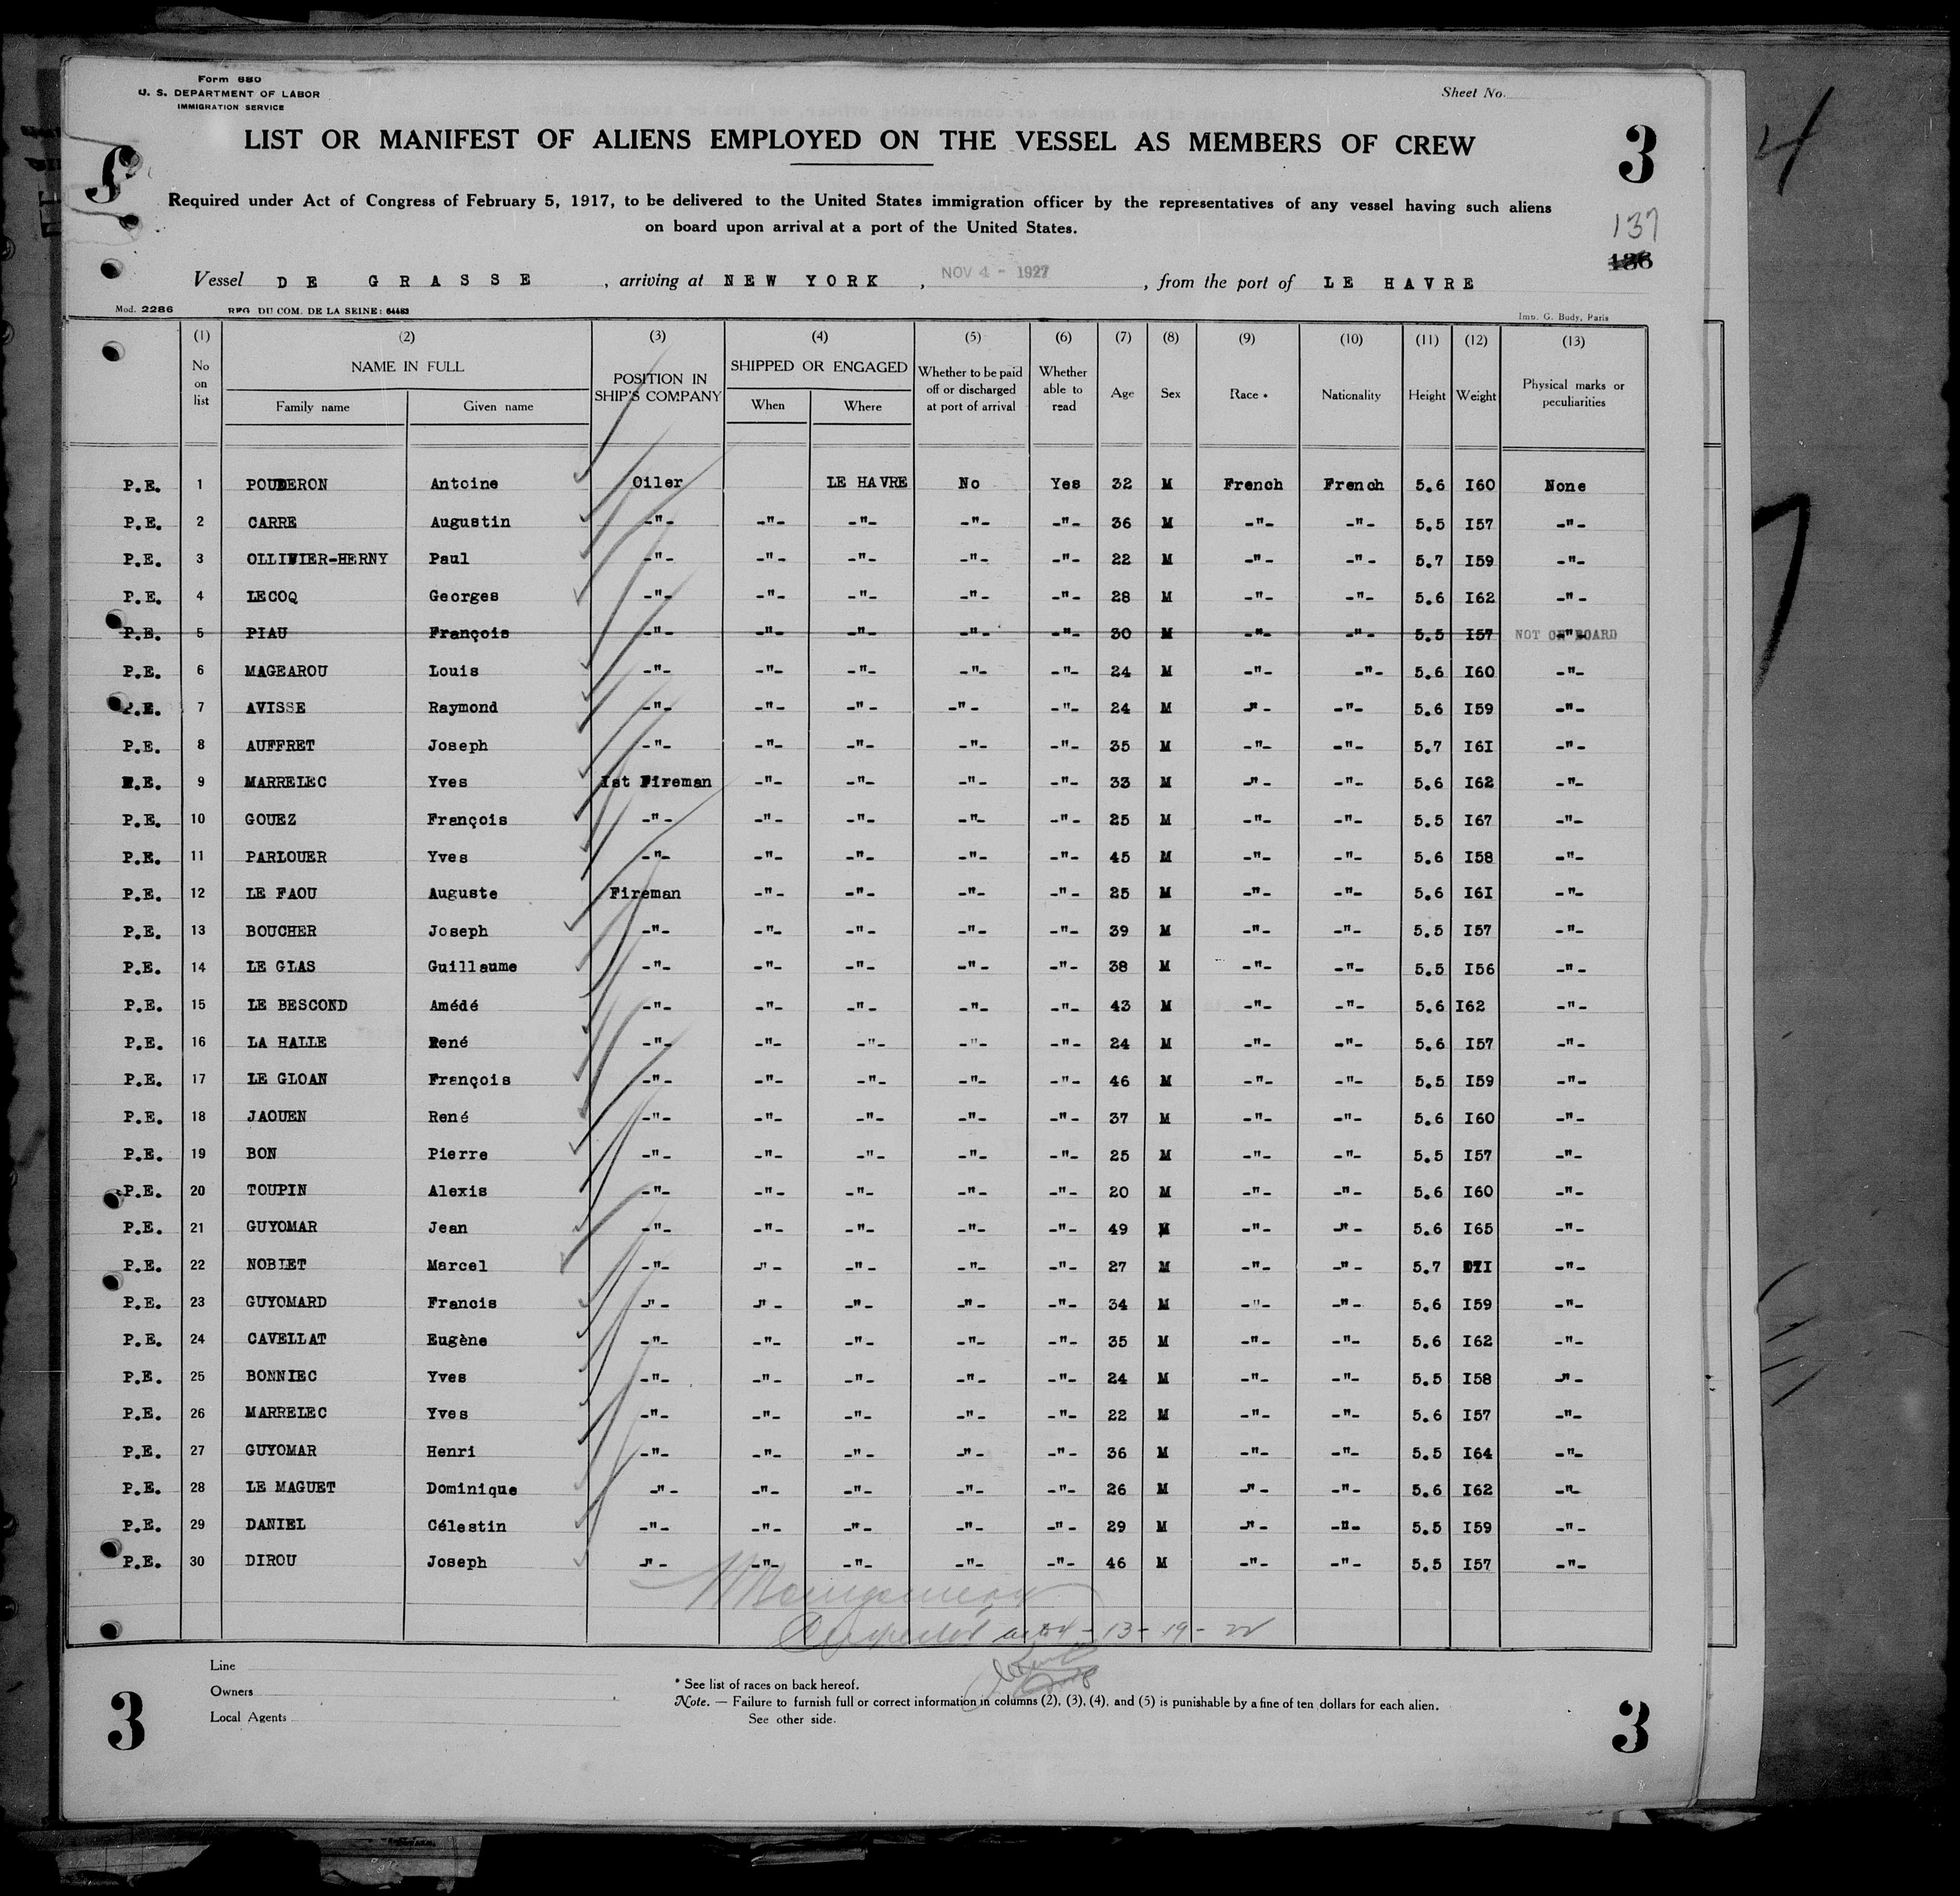 Form 680
U. S. DEPARTMENT OF LABOR
IMMIGRATION SERVICE
Sheet No.
LIST OR MANIFEST OF ALIENS EMPLOYED ON THE VESSEL AS MEMBERS OF CREW
3
Required under Act of Congress of February 5, 1917, to be delivered to the United States immigration officer by the representatives of any vessel having such aliens
on board upon arrival at a port of the United States.
137
186
Vessel DE GRASSE , arriving at NEW YORK , NOV 4 - 1927 , from the port of LE HAVRE
Mod. 2286 RPG DU COM. DE LA SEINE: 64483 Imp. G. Budy, Paris
(1) (2) (3) (4) (5) (6) (7) (8) (9) (10) (11) (12) (13)
No on list NAME IN FULL POSITION IN SHIP'S COMPANY SHIPPED OR ENGAGED Whether to be paid off or discharged at port of arrival Whether able to read Age Sex Race * Nationality Height Weight Physical marks or peculiarities
Family name Given name When Where
P.E. 1 POUDERON Antoine Oiler LE HAVRE No Yes 32 M French French 5.6 I60 None
P.E. 2 CARRE Augustin -"- -"- -"- -"- -"- 36 M -"- -"- 5.5 I57 -"-
P.E. 3 OLLIVIER-HERNY Paul -"- -"- -"- -"- -"- 22 M -"- -"- 5.7 I59 -"-
P.E. 4 LECOQ Georges -"- -"- -"- -"- -"- 28 M -"- -"- 5.6 I62 -"-
P.E. 5 PIAU François -"- -"- -"- -"- -"- 30 M -"- -"- 5.5 I57 -"- NOT ON BOARD
P.E. 6 MAGEAROU Louis -"- -"- -"- -"- -"- 24 M -"- -"- 5.6 I60 -"-
P.E. 7 AVISSE Raymond -"- -"- -"- -"- -"- 24 M -"- -"- 5.6 I59 -"-
P.E. 8 AUFFRET Joseph -"- -"- -"- -"- -"- 35 M -"- -"- 5.7 I6I -"-
P.E. 9 MARRELEC Yves Ist Fireman -"- -"- -"- -"- 33 M -"- -"- 5.6 I62 -"-
P.E. 10 GOUEZ François -"- -"- -"- -"- -"- 25 M -"- -"- 5.5 I67 -"-
P.E. 11 PARLOUER Yves -"- -"- -"- -"- -"- 45 M -"- -"- 5.6 I58 -"-
P.E. 12 LE FAOU Auguste Fireman -"- -"- -"- -"- 25 M -"- -"- 5.6 I6I -"-
P.E. 13 BOUCHER Joseph -"- -"- -"- -"- -"- 39 M -"- -"- 5.5 I57 -"-
P.E. 14 LE GLAS Guillaume -"- -"- -"- -"- -"- 38 M -"- -"- 5.5 I56 -"-
P.E. 15 LE BESCOND Amédé -"- -"- -"- -"- -"- 43 M -"- -"- 5.6 I62 -"-
P.E. 16 LA HALLE René -"- -"- -"- -"- -"- 24 M -"- -"- 5.6 I57 -"-
P.E. 17 LE GLOAN François -"- -"- -"- -"- -"- 46 M -"- -"- 5.5 I59 -"-
P.E. 18 JAOUEN René -"- -"- -"- -"- -"- 37 M -"- -"- 5.6 I60 -"-
P.E. 19 BON Pierre -"- -"- -"- -"- -"- 25 M -"- -"- 5.5 I57 -"-
P.E. 20 TOUPIN Alexis -"- -"- -"- -"- -"- 20 M -"- -"- 5.6 I60 -"-
P.E. 21 GUYOMAR Jean -"- -"- -"- -"- -"- 49 M -"- -"- 5.6 I65 -"-
P.E. 22 NOBLET Marcel -"- -"- -"- -"- -"- 27 M -"- -"- 5.7 -"-
P.E. 23 GUYOMARD Francis -"- -"- -"- -"- -"- 34 M -"- -"- 5.6 I59 -"-
P.E. 24 CAVELLAT Eugène -"- -"- -"- -"- -"- 35 M -"- -"- 5.6 I62 -"-
P.E. 25 BONNIEC Yves -"- -"- -"- -"- -"- 24 M -"- -"- 5.5 I58 -"-
P.E. 26 MARRELEC Yves -"- -"- -"- -"- -"- 22 M -"- -"- 5.6 I57 -"-
P.E. 27 GUYOMAR Henri -"- -"- -"- -"- -"- 36 M -"- -"- 5.5 I64 -"-
P.E. 28 LE MAGUET Dominique -"- -"- -"- -"- -"- 26 M -"- -"- 5.6 I62 -"-
P.E. 29 DANIEL Célestin -"- -"- -"- -"- -"- 29 M -"- -"- 5.5 I59 -"-
P.E. 30 DIROU Joseph -"- -"- -"- -"- -"- 46 M -"- -"- 5.5 I57 -"-
- 13 - 19 - 22
Line
Owners
Local Agents
* See list of races on back hereof.
Note. — Failure to furnish full or correct information in columns (2), (3), (4), and (5) is punishable by a fine of ten dollars for each alien.
See other side.
3
3
4
7